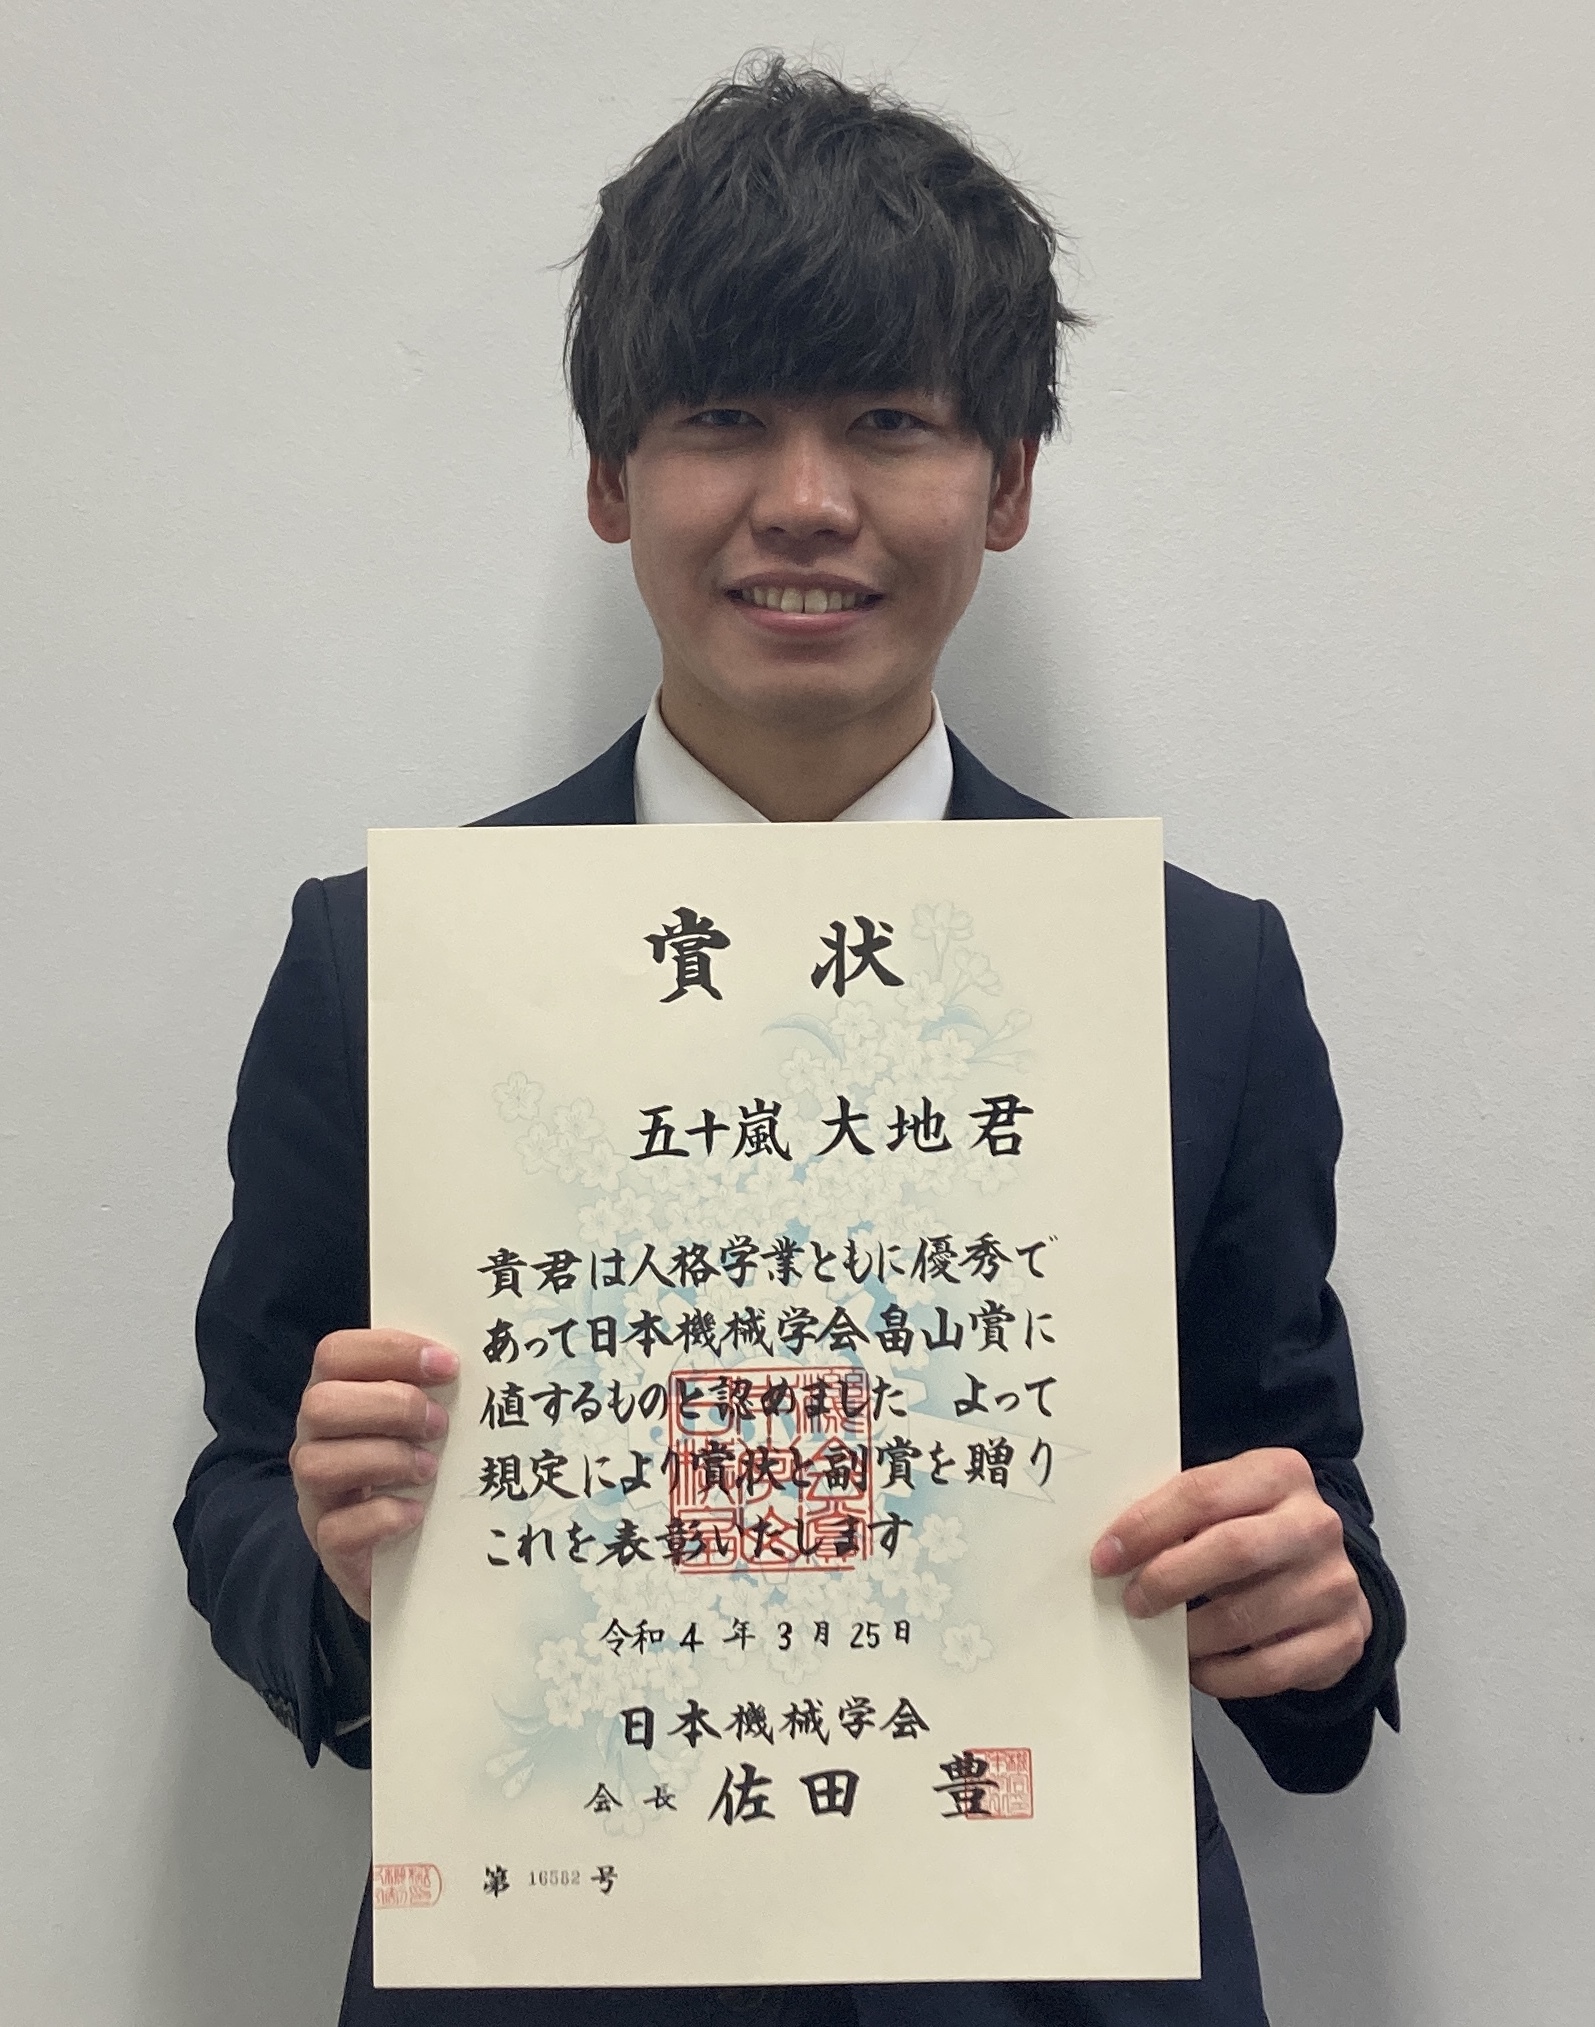 賞状
五十嵐 大地 君
貴君は人格学業ともに優秀で
あって日本機械学会畠山賞に
値するものと認めました よって
規定により賞状と副賞を贈り
これを表彰いたします
令和 4 年 3 月 25 日
日本機械学会
会長 佐田 豊
第 16582 号